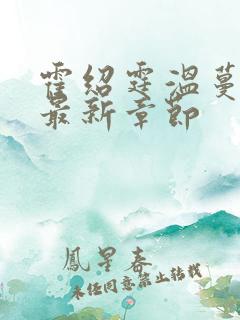 霍绍霆温蔓
最新章節
鳳星春
未经同意禁止转载